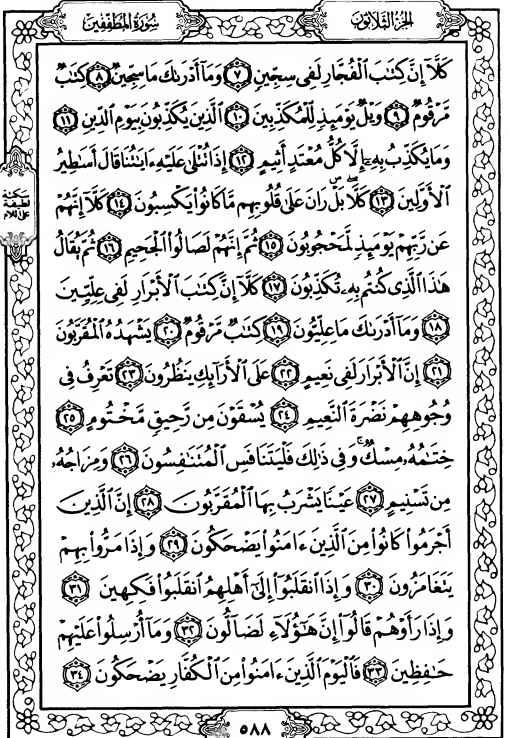 سُورَةُ المُطَفِّفِينَ
الجُزءُ الثَّلَاثُونَ
كَلَّآ إِنَّ كِتَٰبَ ٱلْفُجَّارِ لَفِى سِجِّينٍ ٧ وَمَآ أَدْرَىٰكَ مَا سِجِّينٌ ٨ كِتَٰبٌ
مَّرْقُومٌ ٩ وَيْلٌ يَوْمَئِذٍ لِّلْمُكَذِّبِينَ ١٠ ٱلَّذِينَ يُكَذِّبُونَ بِيَوْمِ ٱلدِّينِ ١١
وَمَا يُكَذِّبُ بِهِۦٓ إِلَّا كُلُّ مُعْتَدٍ أَثِيمٍ ١٢ إِذَا تُتْلَىٰ عَلَيْهِ ءَايَٰتُنَا قَالَ أَسَٰطِيرُ
ٱلْأَوَّلِينَ ١٣ كَلَّا ۖ بَلْ ۜ رَانَ عَلَىٰ قُلُوبِهِم مَّا كَانُوا۟ يَكْسِبُونَ ١٤ كَلَّآ إِنَّهُمْ
سكتة
لطيفة
على اللام
عَن رَّبِّهِمْ يَوْمَئِذٍ لَّمَحْجُوبُونَ ١٥ ثُمَّ إِنَّهُمْ لَصَالُوا۟ ٱلْجَحِيمِ ١٦ ثُمَّ يُقَالُ
هَٰذَا ٱلَّذِى كُنتُم بِهِۦ تُكَذِّبُونَ ١٧ كَلَّآ إِنَّ كِتَٰبَ ٱلْأَبْرَارِ لَفِى عِلِّيِّينَ
١٨ وَمَآ أَدْرَىٰكَ مَا عِلِّيُّونَ ١٩ كِتَٰبٌ مَّرْقُومٌ ٢٠ يَشْهَدُهُ ٱلْمُقَرَّبُونَ
٢١ إِنَّ ٱلْأَبْرَارَ لَفِى نَعِيمٍ ٢٢ عَلَى ٱلْأَرَآئِكِ يَنظُرُونَ ٢٣ تَعْرِفُ فِى
وُجُوهِهِمْ نَضْرَةَ ٱلنَّعِيمِ ٢٤ يُسْقَوْنَ مِن رَّحِيقٍ مَّخْتُومٍ ٢٥
خِتَٰمُهُۥ مِسْكٌ ۚ وَفِى ذَٰلِكَ فَلْيَتَنَافَسِ ٱلْمُتَنَٰفِسُونَ ٢٦ وَمِزَاجُهُۥ
مِن تَسْنِيمٍ ٢٧ عَيْنًا يَشْرَبُ بِهَا ٱلْمُقَرَّبُونَ ٢٨ إِنَّ ٱلَّذِينَ
أَجْرَمُوا۟ كَانُوا۟ مِنَ ٱلَّذِينَ ءَامَنُوا۟ يَضْحَكُونَ ٢٩ وَإِذَا مَرُّوا۟ بِهِمْ
يَتَغَامَزُونَ ٣٠ وَإِذَا ٱنقَلَبُوٓا۟ إِلَىٰٓ أَهْلِهِمُ ٱنقَلَبُوا۟ فَكِهِينَ ٣١
وَإِذَا رَأَوْهُمْ قَالُوٓا۟ إِنَّ هَٰٓؤُلَآءِ لَضَآلُّونَ ٣٢ وَمَآ أُرْسِلُوا۟ عَلَيْهِمْ
حَٰفِظِينَ ٣٣ فَٱلْيَوْمَ ٱلَّذِينَ ءَامَنُوا۟ مِنَ ٱلْكُفَّارِ يَضْحَكُونَ ٣٤
٥٨٨